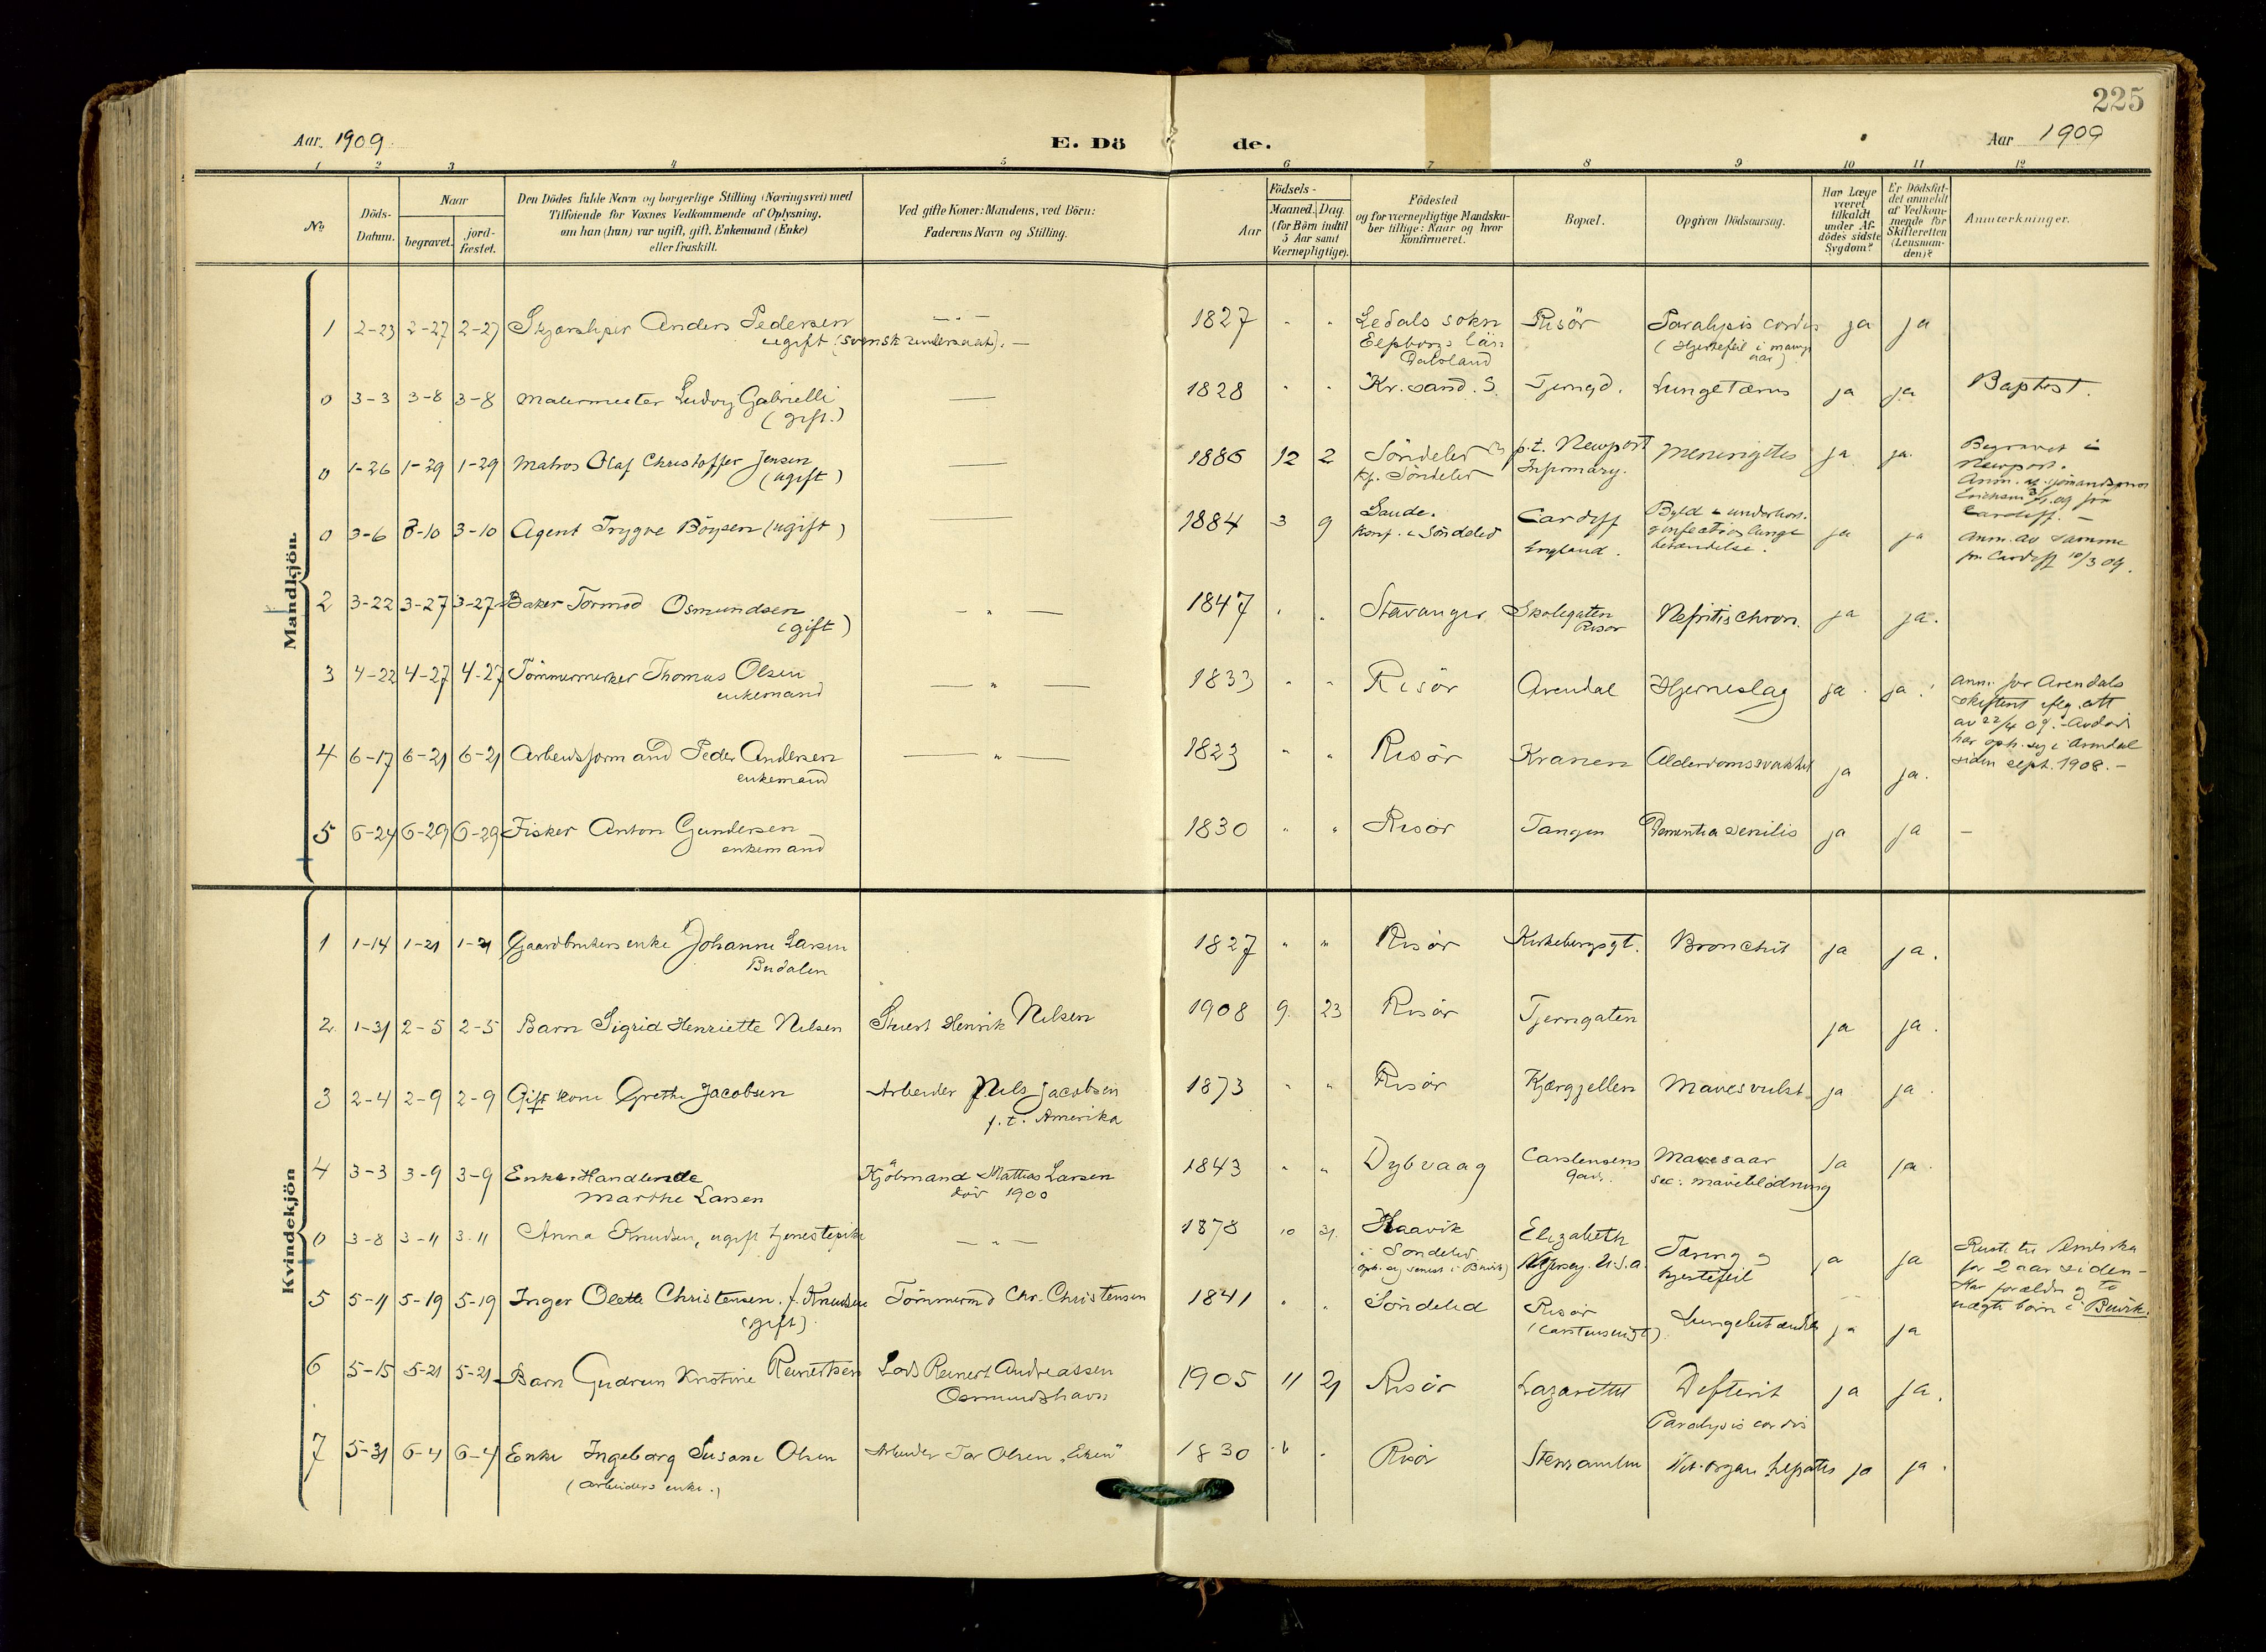 225
Aar 1909
E. Dö
de.
Aar 1909
1 2 3 4 5 6 7 8 9 10 11 12
No
Döds-
Datum.
Naar
begravet.
jord-
fæstet.
Den Dödes fulde Navn og borgerlige Stilling (Næringsvei) med
Tilföiende for Voxnes Vedkommende af Oplysning,
om han (hun) var ugift, gift, Enkemand (Enke)
eller fraskilt.
Ved gifte Koner: Mandens, ved Börn:
Faderens Navn og Stilling.
Födsels-
Aar
Maaned. Dag.
(for Börn indtil
5 Aar samt
Værnepligtige).
Födested
og for værnepligtige Mandska-
ber tillige: Naar og hvor
konfirmeret.
Bopæl.
Opgiven Dödsaarsag.
Har Læge
været
tilkaldt
under Af-
dödes sidste
Sygdom?
Er Dödsfal-
det anmeldt
af Vedkom-
mende for
Skifteretten
(Lensman-
den)?
Anmærkninger.
Mandkjön.
1 2-23 2-27 2-27 Anders Pedersen — " — 1827 " " Ledals sokn Risör Paralysis cordis ja ja
ugift (svensk undersaat). — Elfsborgs län (Hjertefeil i mange
Dalsland aar)
0 3-3 3-8 3-8 Malermester Ludvig Gabrielli — 1828 " " Kr.sand. S. Tjerngd. Lungetæring ja ja Baptist.
(gift.)
0 1-26 1-29 1-29 Matros Olaf Christoffer Jensen — 1886 12 2 Söndeled p.t. Newport Meningites ja ja. Begravet i
(ugift) Kf. Söndeled Infirmary. Newport.
0 3-6 3-10 3-10 Agent Trygve Böysen (ugift) — 1884 3 9 Sande. Cardiff Byld ja ja
Konf. i Söndeled England. betændelse.
Anm. av samme
fra Cardiff 10/3 09.
2 3-22 3-27 3-27 Baker Tormod Osmundsen — " — 1847 " " Stavanger Skolegaten Nefritis chron. ja ja.
(gift) Risör
3 4-22 4-27 4-27 Tömmermerker Thomas Olsen — " — 1833 " " Risör Arendal Hjerneslag ja ja. Anm. for Arendals
enkemand skifteret iflg. att
av 22/4 09. Avdöde
har oph. sig i Arendal
siden sept. 1908. —
4 6-17 6-21 6-21 Arbeidsformand Peder Andersen — " — 1823 " " Risör Kranen Alderdomssvakhet ja ja.
enkemand
5 6-24 6-29 6-29 Fisker Anton Gundersen 1830 " " Risör Tangen Dementia senilis ja ja —
enkemand
Kvindekjön
1 1-14 1-21 1-21 Gaardbrukers enke Johanne Larsen 1827 " " Risör Kirkebergsgt. Bronchit ja ja.
Budalen
2 1-31 2-5 2-5 Barn Sigrid Henriette Nilsen Stuert Henrik Nilsen 1908 9 23 Risör Tjerngaten ja ja.
3 2-4 2-9 2-9 Gift kone Grethe Jacobsen Arbeider Nils Jacobsen 1873 " " Risör Kjærgjellen Mavesvulst ja ja.
p.t. Amerika
4 3-3 3-9 3-9 Enke Handlende Kjöbmand Mathias Larsen 1843 " " Dybvaag Carstensens Mavesaar ja ja.
Marthe Larsen död 1900 gaard. sec: maveblödning
0 3-8 3-11 3-11 Anna Knudsen, ugift tjenestepike — " — 1878 10 31. Haavik Elizabeth Tæring og ja ja Reist til Amerika
i Söndeled N. Jersey. U.S.A. hjertefeil for 2 aar siden —
(oph. sig senest i Buvik) Har forældre og to
uægte börn i Buvik.
5 5-11 5-19 5-19 Inger Olette Christensen f. Knudsen Tömmermd Chr. Christensen 1841 " " Söndeled Risör Lungebetændelse ja ja
(gift) (Carstensensgt)
6 5-15 5-21 5-21 Barn Gudrun Kristine Reinertsen Lods Reinert Andreassen 1905 11 21 Risör Lazarettet Difterit ja ja.
Osmundshavn Paralysis cordis
7 5-31 6-4 6-4 Enke Ingeborg Susane Olsen Arbeider Tar Olsen „Eken" 1830 " " Risör Stensamlen hepatis ja ja.
(arbeiders enke.)